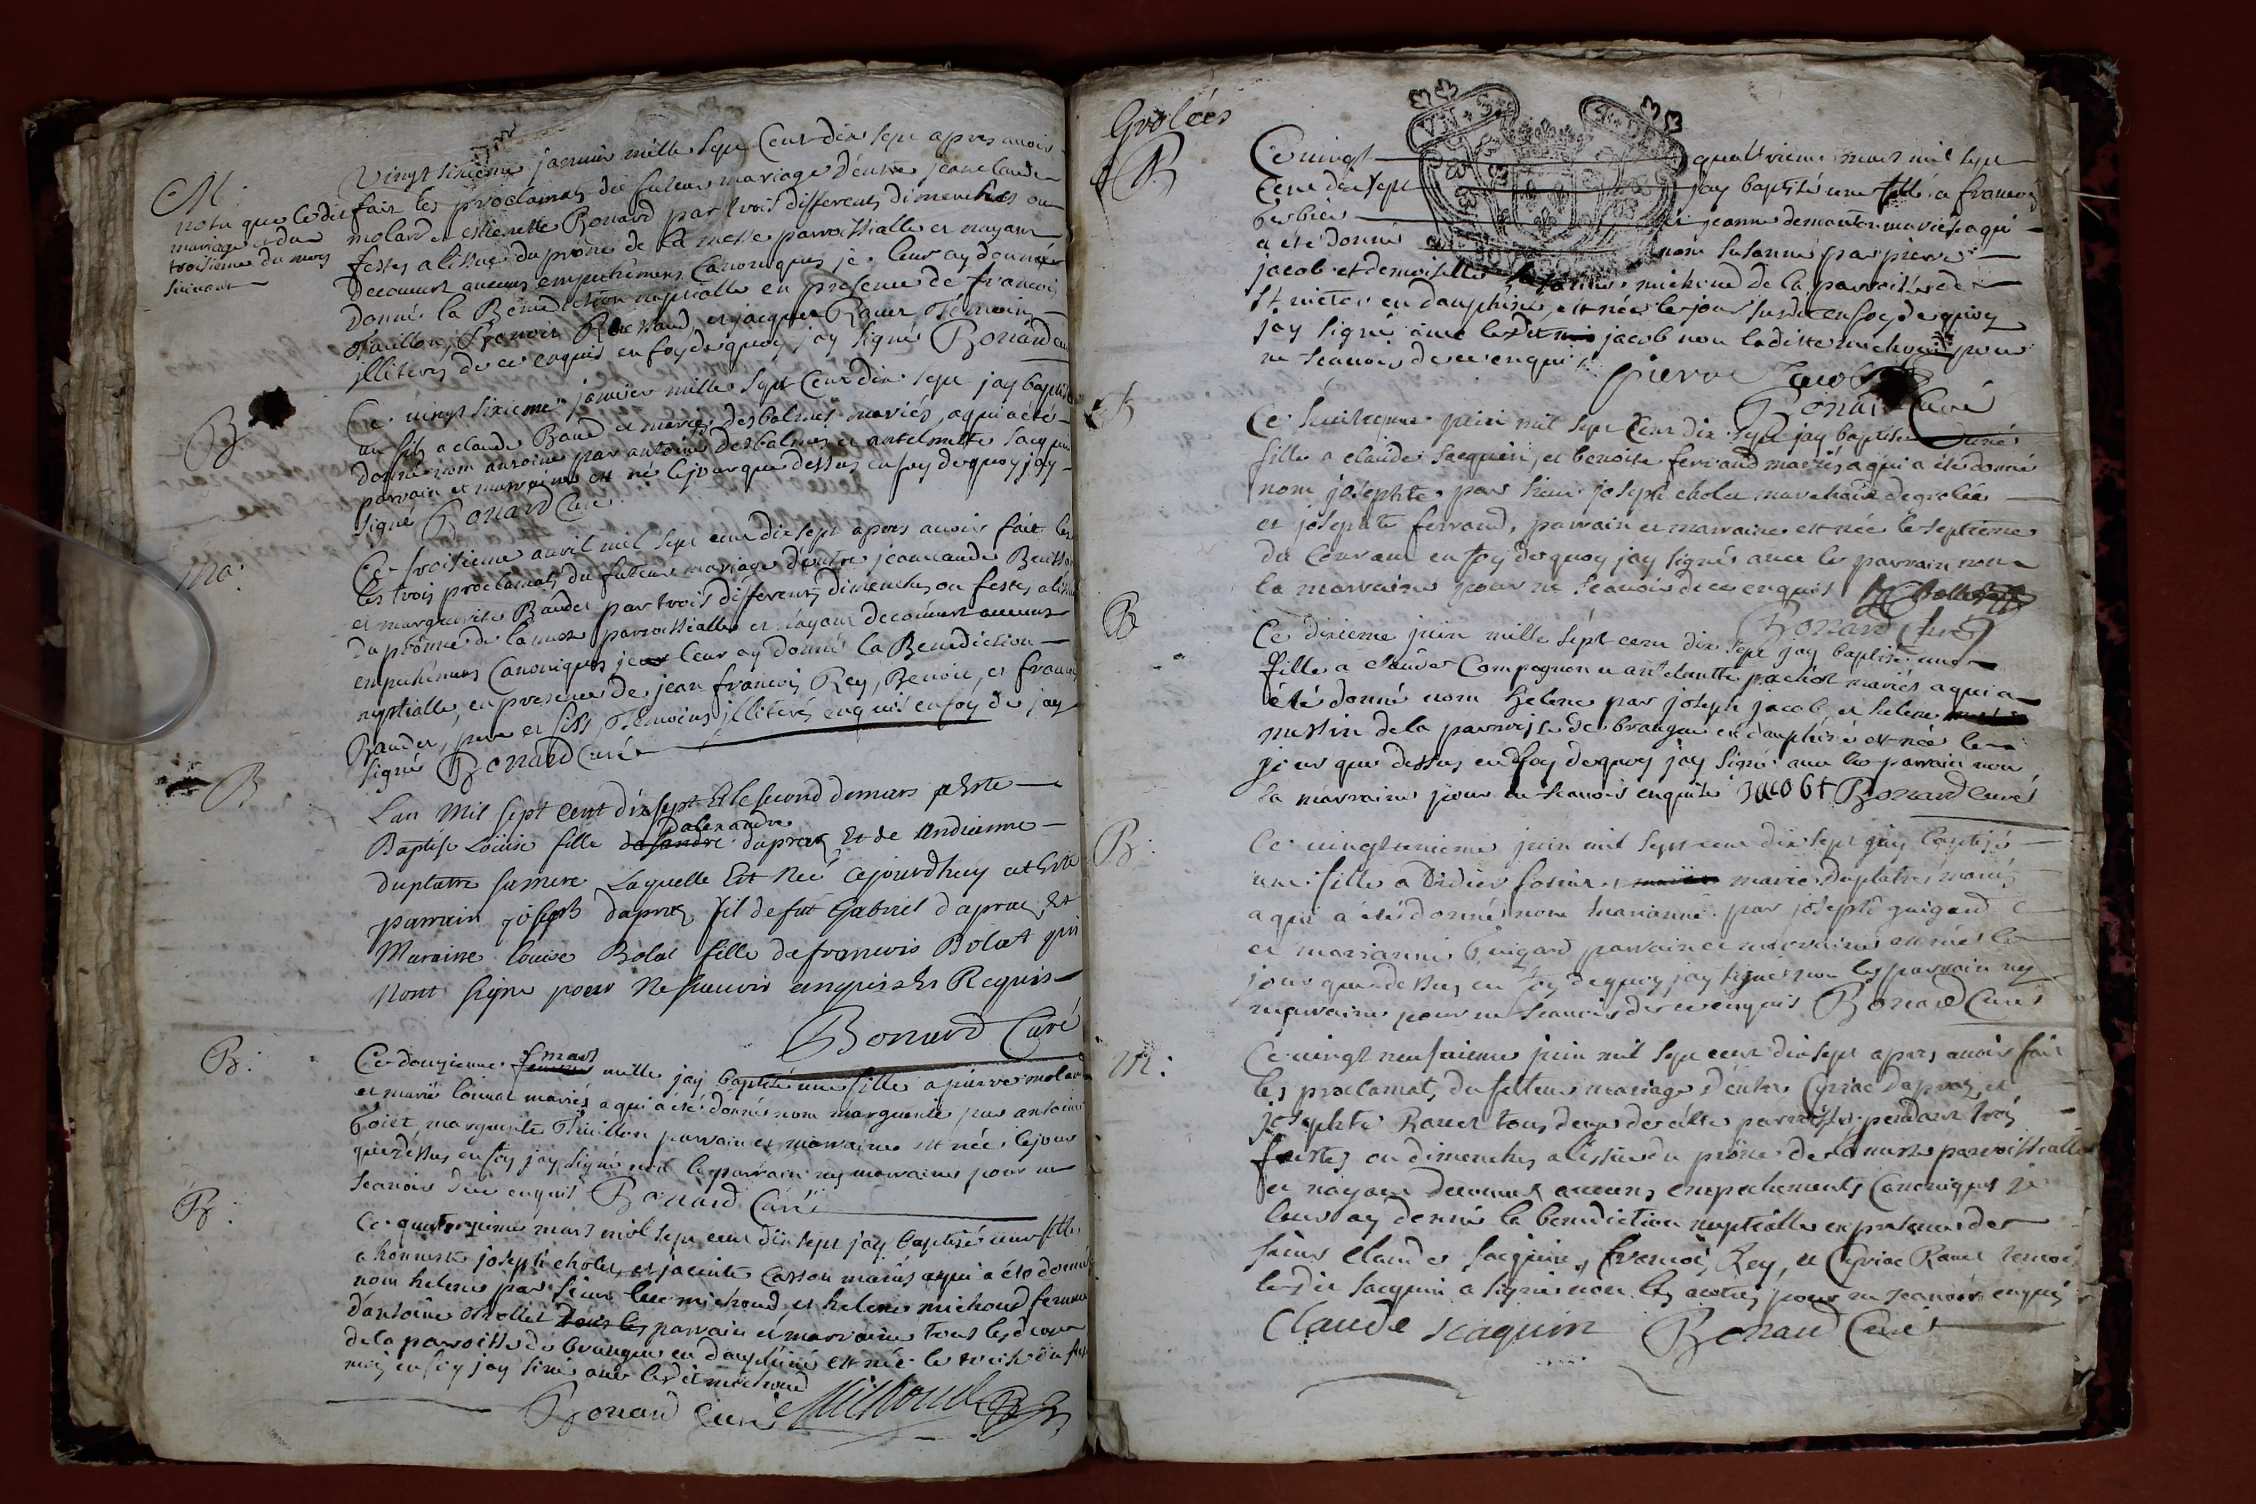 M.
nota que ledit
mariage est du
troisieme du mois
suivant
vingt sixieme janvier mille sept cent dix sept apres avoir
fait les proclamats du futeur mariage d'entre jeanclaude
molard et estiennette Bonard par trois differents dimenches ou
festes a lissue du prone de la messe parroissialle et nayant
decouvert aucuns empechemens Canoniques je leur ay donné
donné la Benediction nuptialle en presence de francois
Tuillon, Benoit et jacques Ravet Témoins
illiterés de ce enquis en foy de quoy jay signé Bonard curé
B
Ce vingt sixieme janvier mille sept cent dix sept jay baptisé
un fils a claude Baud et marie desbalmes mariés, a qui a été
donné nom antoine par antoine desbalmes et antelmette Jacquin
parrain et marraine est né le jour que dessus en foy de quoy jay
signé Bonard Curé
Ma:
Ce troisieme avril mil sept cent dix sept apres avoir fait les
les trois proclamats du futeur mariage d'entre jeanclaude
et marguerite Baudet par trois differents dimenches ou festes a lissue
du prone de la messe parroissialle et nayant decouvert aucuns
empechemens Canoniques je leur ay donné la Benediction
nuptialle, en presence de jean francois Rey, Benoit, et francois
Baudet, pere et fils, Témoins illiterés enquis en foy de jay
signé Bonard Curé
B
Lan mil sept cent dix sept et le second de mars a este
Baptisé Loüise fille dalexandre dapraz et de Andienne
duplatre sa mere laquelle est née cejourdhuy et este
parrain joseph dapraz fil de fut Gabriel dapraz, et
Maraine louise Bolat fille de francois Bolat qui
nont signe pour ne scavoir enquis et Requis
Bonard Curé
B:
Ce douzieme mars mille jay baptisé une fille a pierre molard
et marie loimat mariés a qui a été donné nom marguerite par antoine
marguerite Tuillon parrain et marraine est née le jour
que dessus en foy jay signé non le parrain ny marraine pour ne
scavoir de ce enquis Bonard Curé
B:
Ce quatorzieme mars mil sept cent dix sept jay baptisé une fille
a honneste joseph cholet et jacinte Casson mariés a qui a été donné
nom helene par sieur michoud et helene michoud femme
d'antoine parrain et marraine tous les deux
de la parroisse de brangue en dauphiné est née le treize du present
mois en foy jay siné avec ledit michoud
Bonard Curé Michoud
Grolées
B
Ce vingt quatrieme mars mil sept
cent dix sept jay baptisé une fille a francois
berbier et jeanne demanton mariés a qui
a été donné nom susanne par pierre
jacob et demoiselle susanne michoud de la parroisse de
St victor en dauphiné, est née le jour susdit en foy de quoy
jay signé avec ledit jacob non laditte michoud pour
ne scavoir de ce enquis
pierre Jacob
Bonard Curé
B
Ce huitieme juin mil sept cent dix sept jay baptisé une
fille a claude Jacquin, et benoite ferrand mariés a qui a été donné
nom josephte par sieur joseph cholet marchand de grolée
et josephte ferrand, parrain et marraine est née le septieme
du Courant en foy de quoy jay signé avec le parrain non
la marraine pour ne scavoir de ce enquis J Chollet
Bonard Curé
B
Ce dixieme juin mille sept cent dix sept jay baptisé une
fille a claude Compagnon et antelmette pachot mariés a qui a
été donné nom helene par joseph jacob et helene
mestin de la parroisse de brangue en dauphiné est née le
jour que dessus en foy de quoy jay signé avec le parrain non
la marraine pour ne scavoir enquise Jacobt Bonard Curé
B:
Ce vingtunieme juin mil sept cent dix sept jay baptisé
une fille a Didier et marie duplatre mariés
a qui a été donné nom marianne par joseph guigard
et marianne Guigard parrain et marraine est née le
jour que dessus, en foy de quoy jay signé non les parrain ny
marraine pour ne scavoir de ce enquis Bonard Curé
M:
Ce vingt neufvieme juin mil sept cent dix sept apres avoir fait
les proclamats du futteur mariage d'entre Cyriac dapraz, et
josephte Ravet tous deux de cette parroisse pendant trois
festes ou dimenches a lissue du prone de la messe parroissialle
et nayant decouvert aucuns empechements Canoniques je
leur ay donné la benediction nuptialle en presence de
sieur Claude Jacquin, francois Rey, et Cyriac Ravet temoins
ledit Jacquin a signé non les autres, pour ne scavoir enquis
Claude Jaquin Bonard Curé